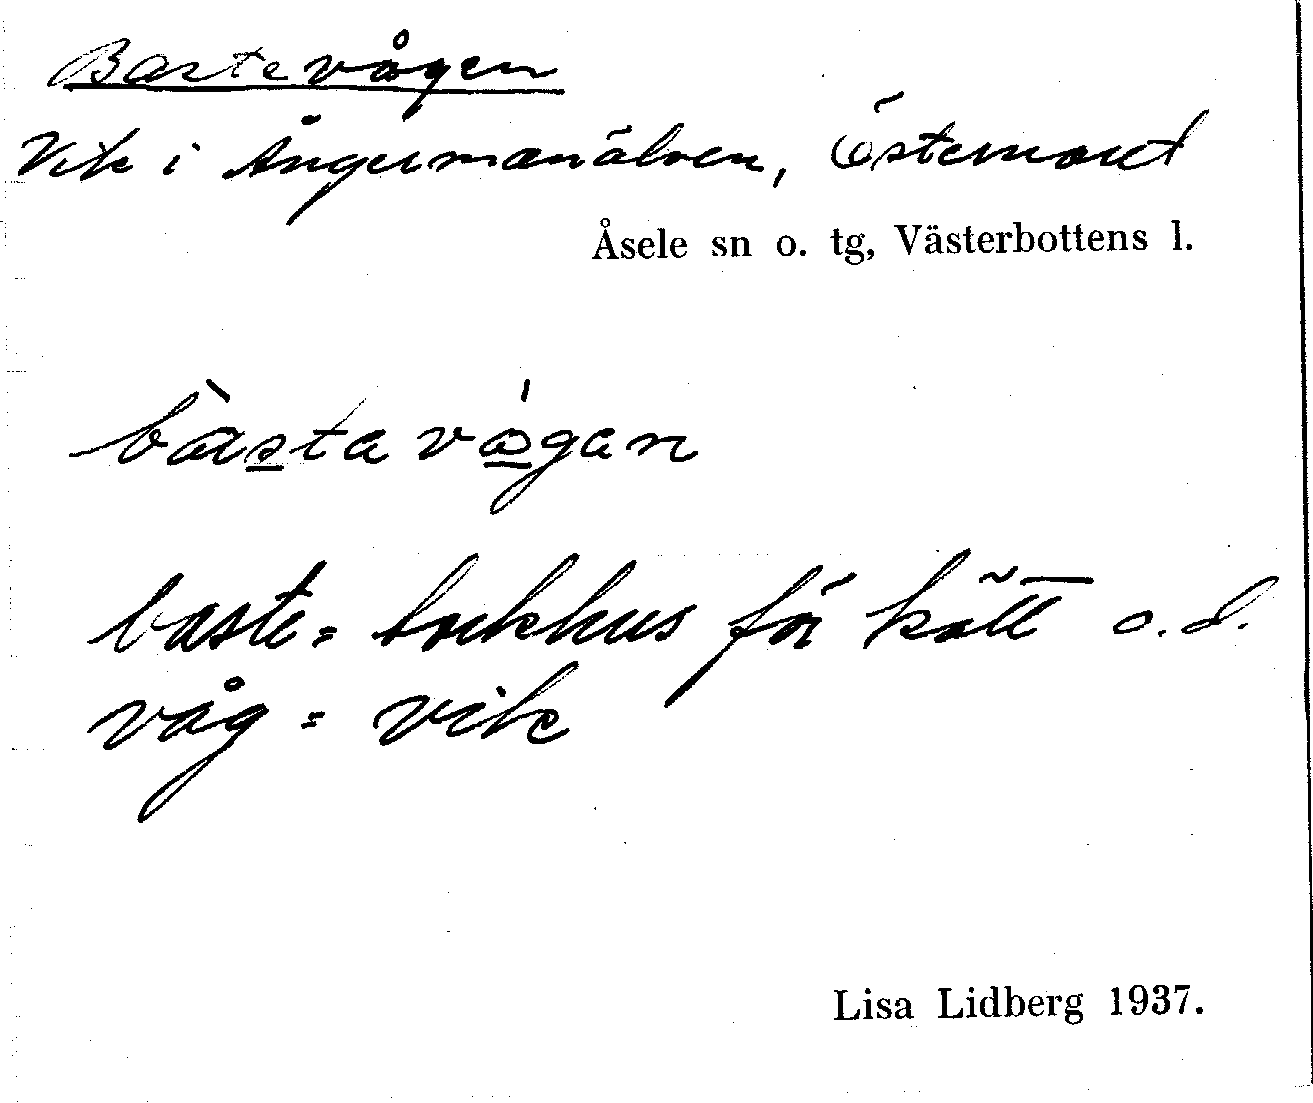 Bastevågen
Vik i Ångermanälven, Östernoret
Åsele sn o. tg, Västerbottens l.
bàs̲ta vó̲gan
baste = torkhus för kött o.d.
våg = vik
Lisa Lidberg 1937.